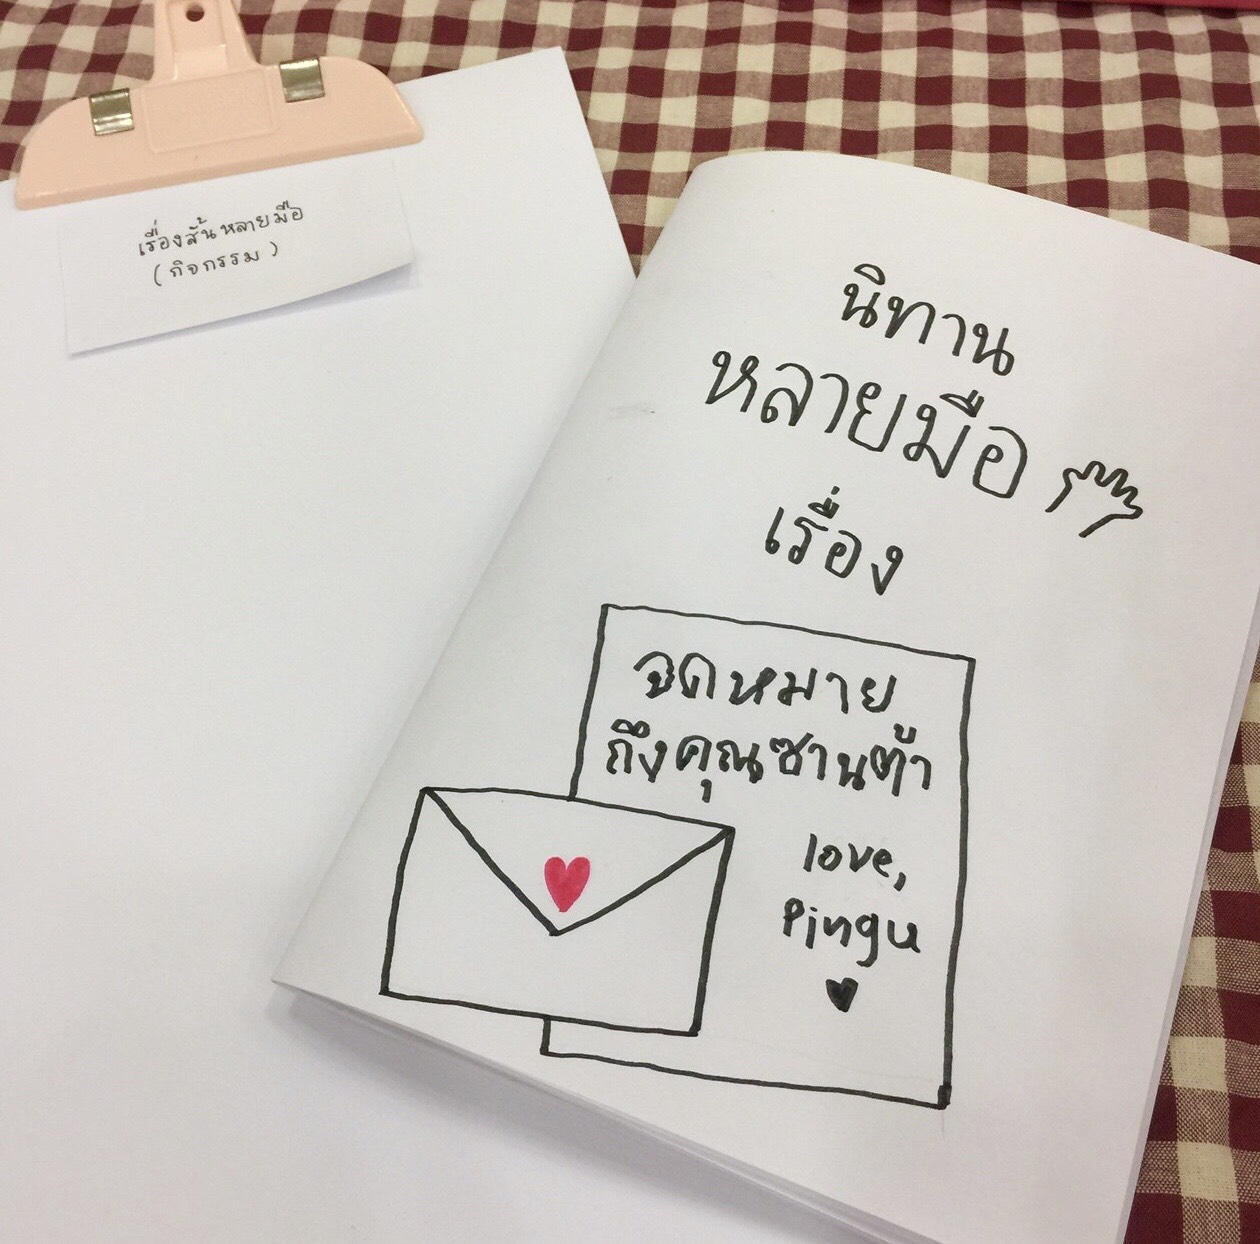 เรื่องสั้นหลายมือ
(กิจกรรม)
นิทาน
หลายมือ
เรื่อง
จดหมาย
ถึงคุณซานต้า
love,
Pingu